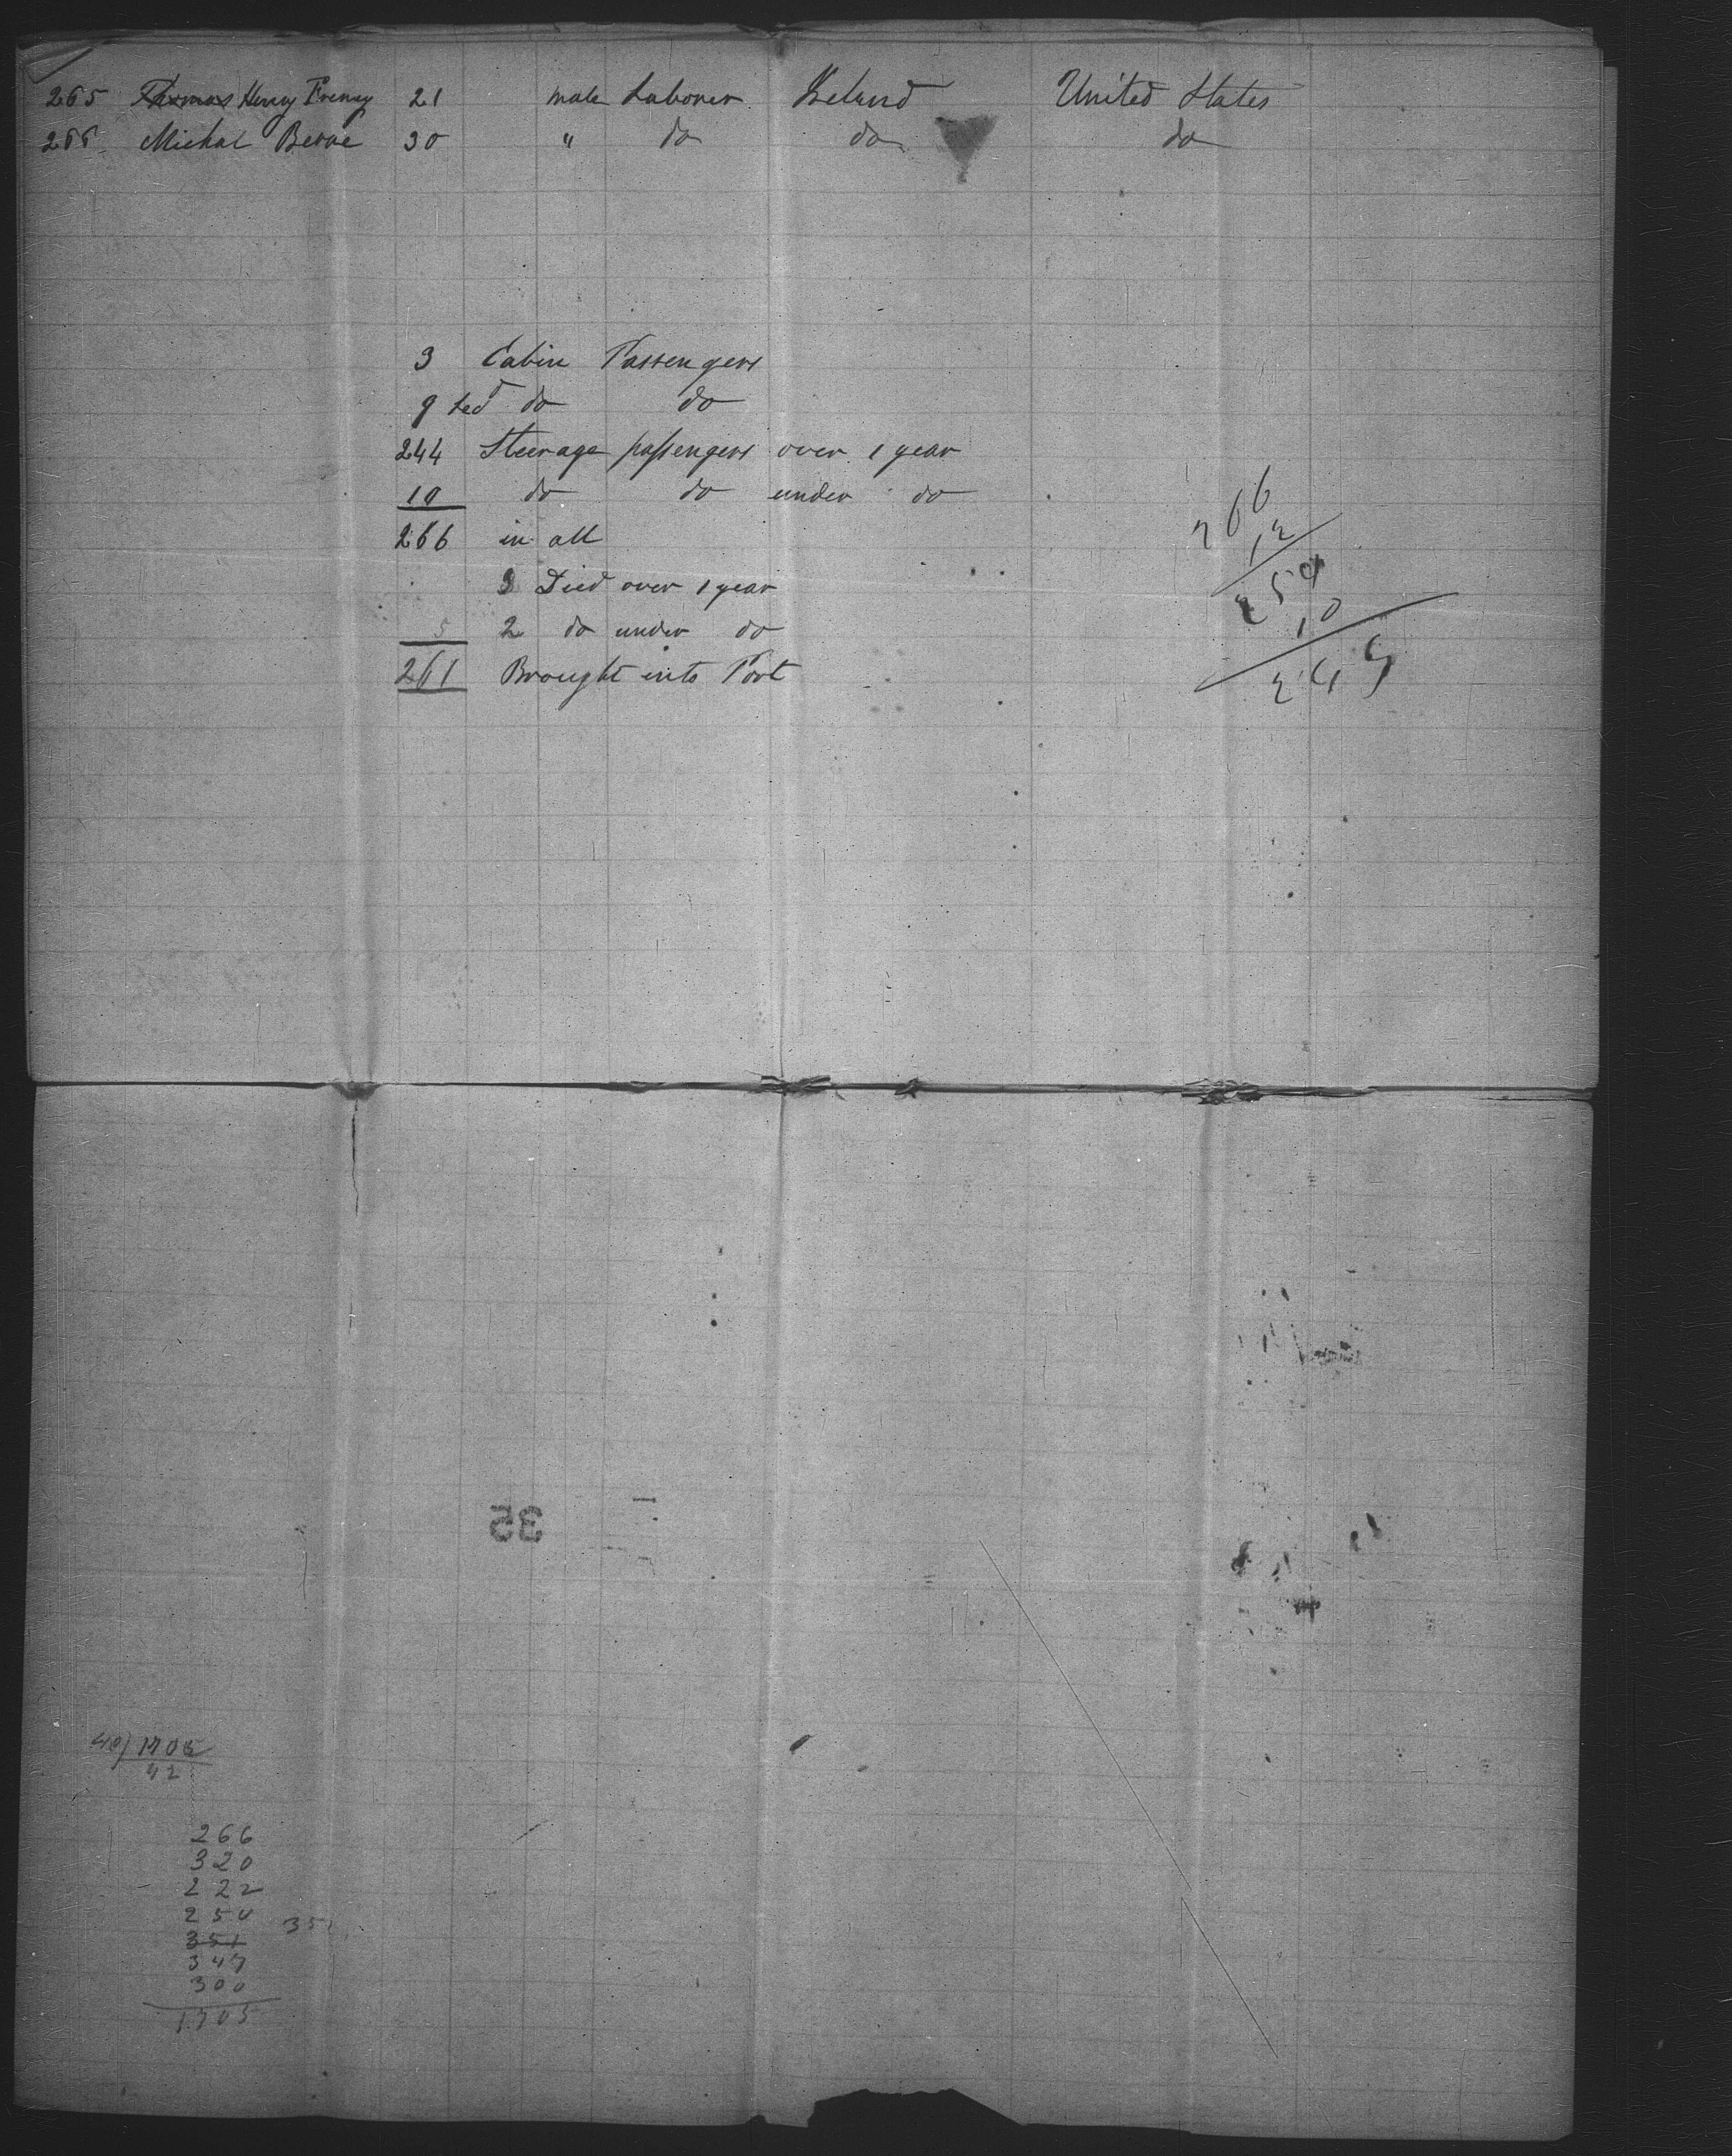 265 Thomas Henry Freney 21 male Laborer Ireland United States
266 Michal Beirne 30 " do do do
3 Cabin Passengers
9 2ed do do
244 Steerage passengers over 1 year
10 do do under do
266 in all
3 Died over 1 year
5 2 do under do
261 Brought into Port
266
12
254
10
244
35
40) 1705
42
266
320
222
250
351 351
347
300
1705